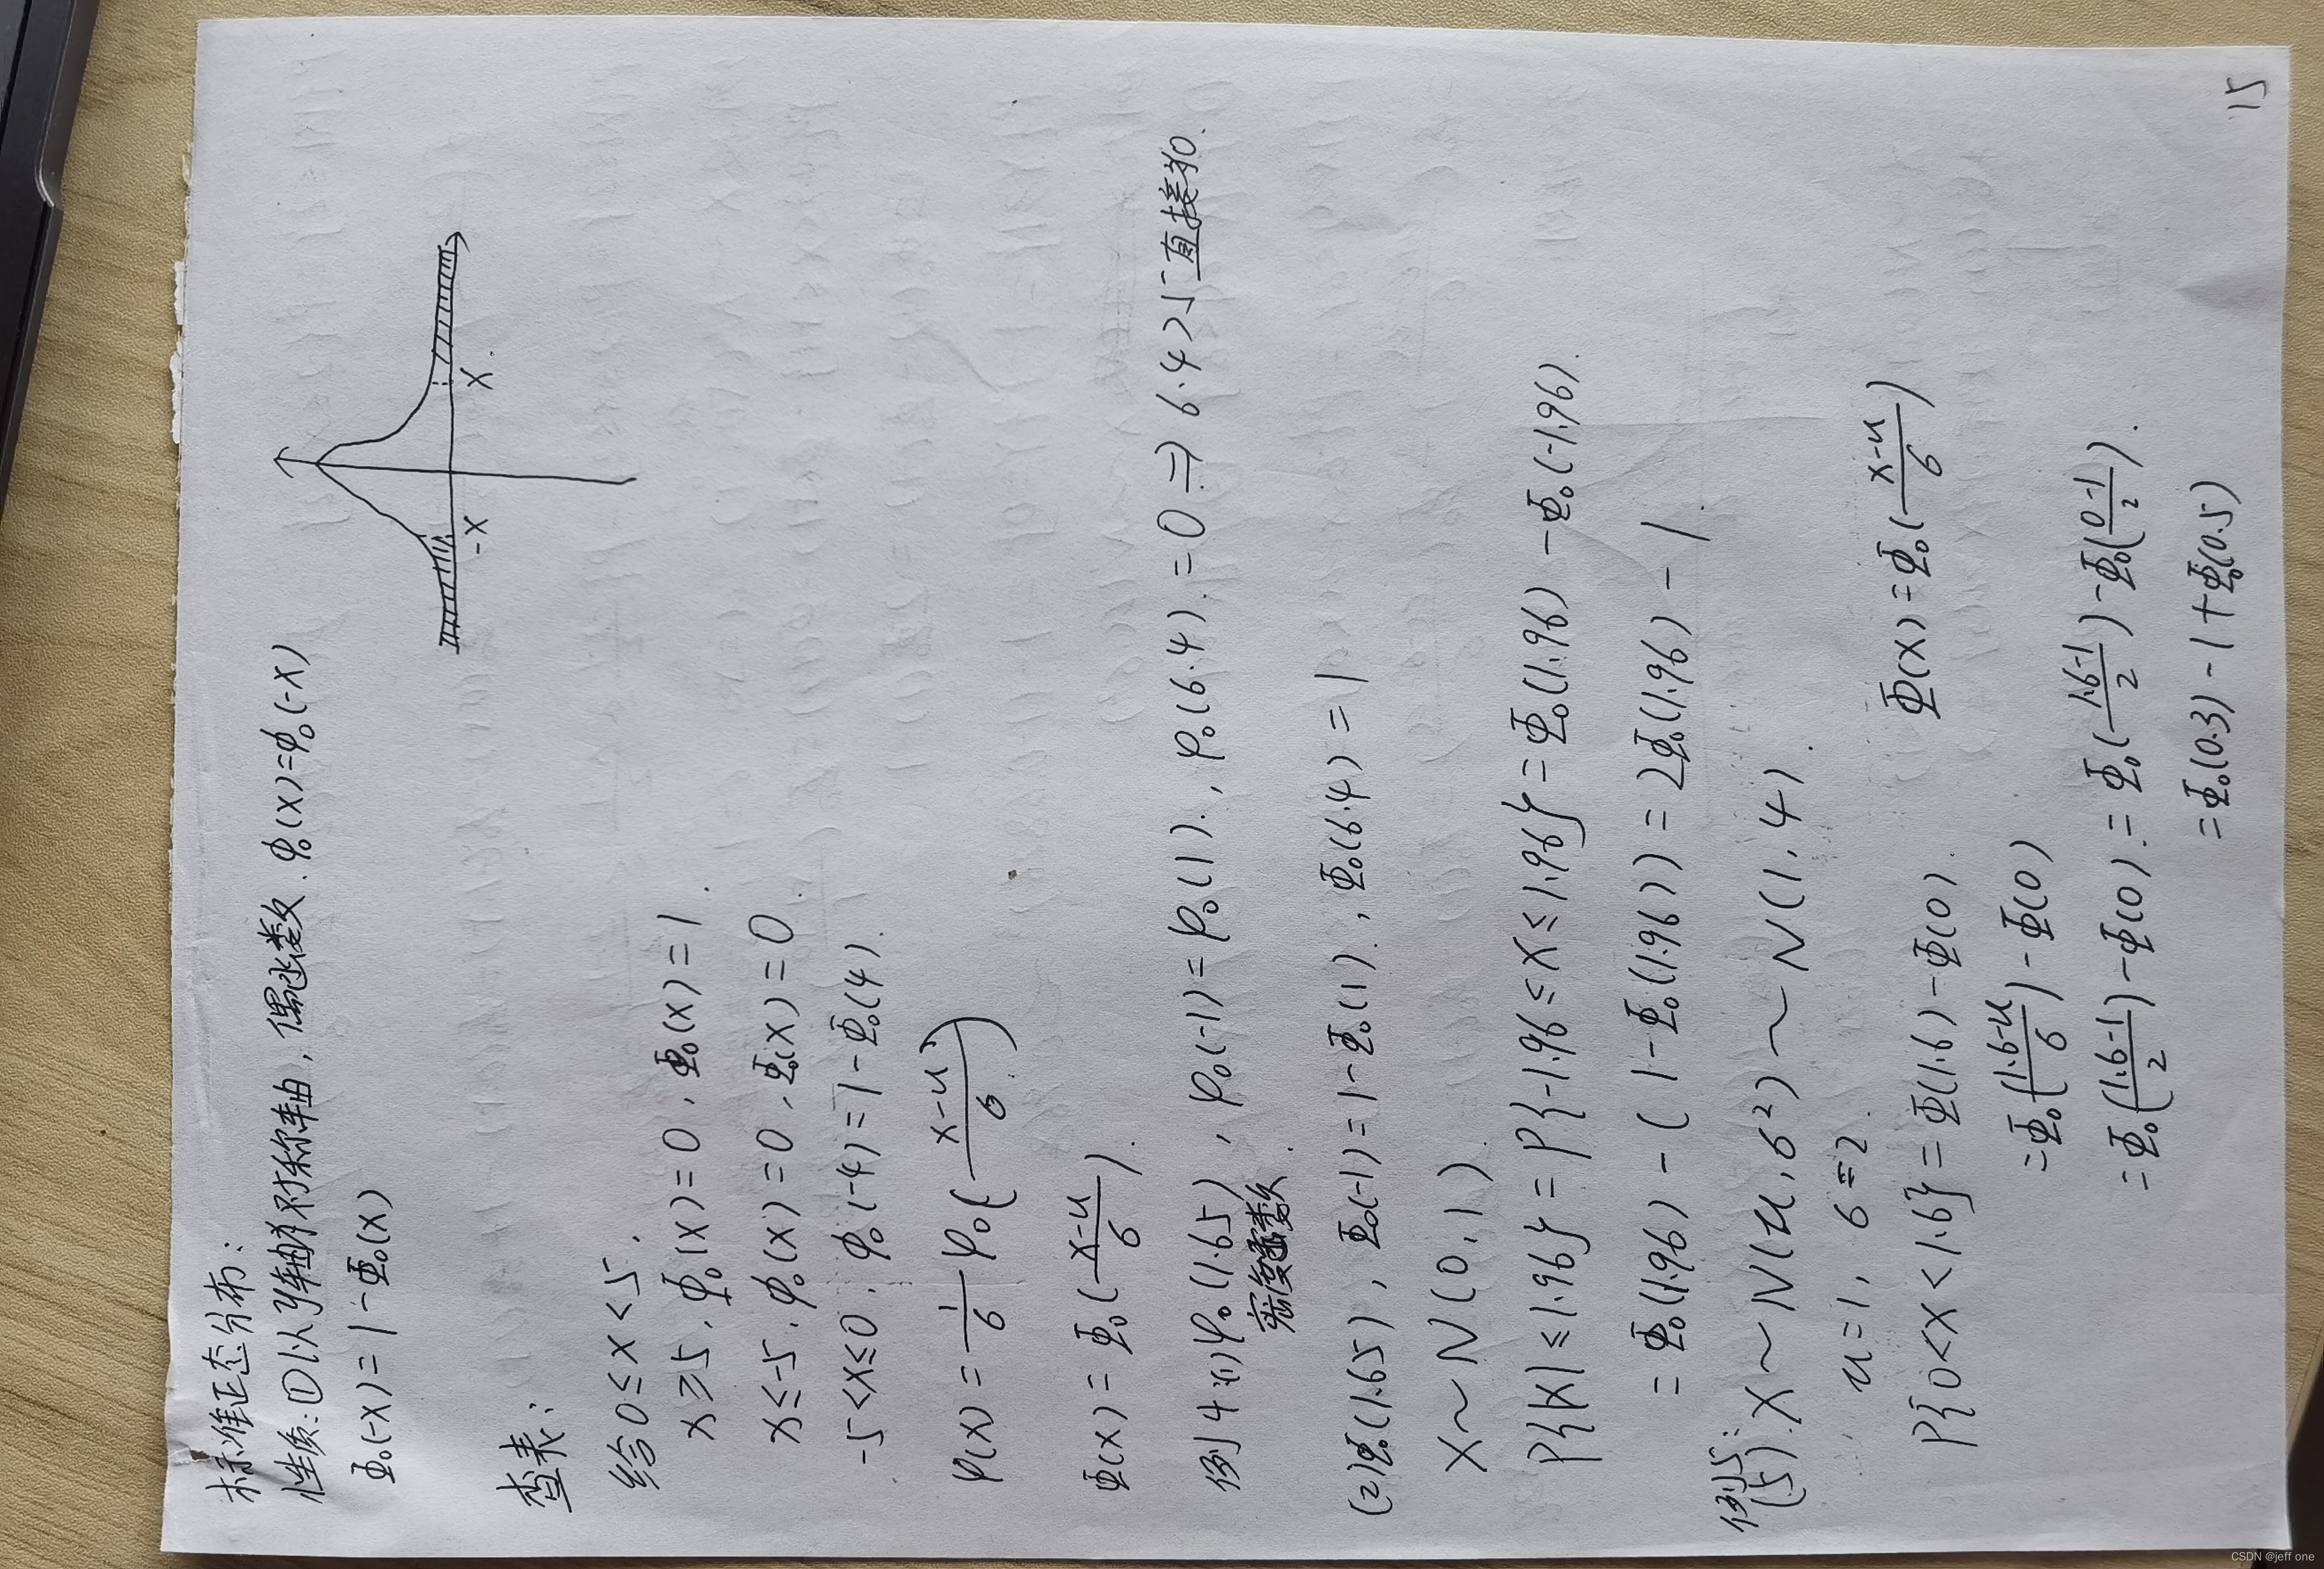 标准正态分布:
性质:①以y轴为对称轴,偶函数.φ₀(x)=φ₀(-x)
Φ₀(-x)=1-Φ₀(x)
-x x
查表:
给0≤x<5.
x≥5.φ₀(x)=0,Φ₀(x)=1.
x≤-5.φ₀(x)=0,Φ₀(x)=0.
-5<x≤0.φ₀(-4)=1-Φ₀(4).
φ(x)=\frac{1}{6}φ₀(\frac{x-u}{6})
Φ(x)=Φ₀(\frac{x-u}{6}).
例4(1)φ₀(1.65),φ₀(-1)=φ₀(1).,φ₀(6.4).=0⇒6.4>5直接为0.
密度函数.
(2)Φ₀(1.65),Φ₀(-1)=1-Φ₀(1).,Φ₀(6.4)=1
X~N(0,1).
P{|X|≤1.96}=P{-1.96≤X≤1.96}=Φ₀(1.96)-Φ₀(-1.96).
=Φ₀(1.96)-(1-Φ₀(1.96))=2Φ₀(1.96)-1.
例5:
(5).X~N(u,6²)~N(1,4).
u=1,6=2.
Φ(x)=Φ₀(\frac{x-u}{6})
P{0<X<1.6}=Φ(1.6)-Φ(0).
=Φ₀(\frac{1.6-u}{6})-Φ(0)
=Φ₀(\frac{1.6-1}{2})-Φ(0).=Φ₀(\frac{1.6-1}{2})-Φ₀(\frac{0-1}{2}).
=Φ₀(0.3)-1+Φ₀(0.5)
15
CSDN @jeff one